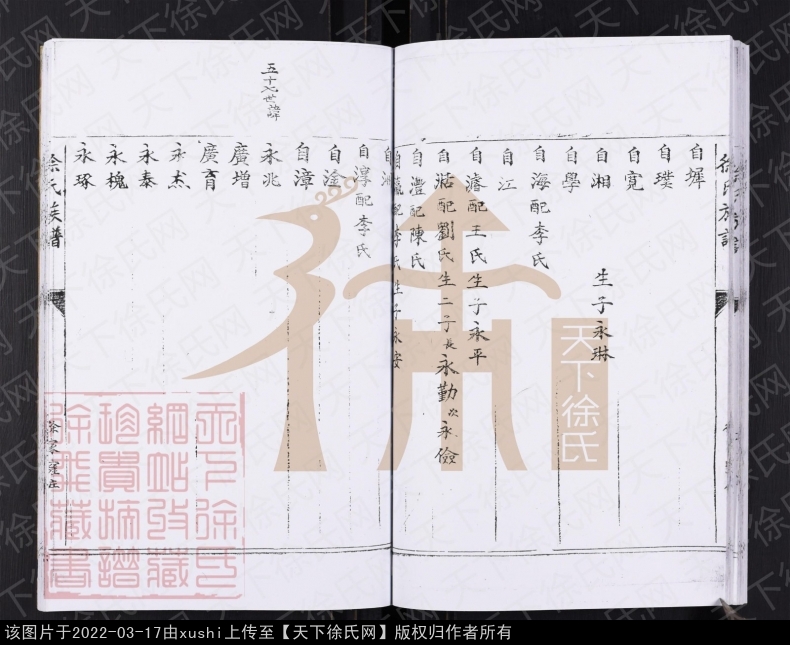 徐氏族譜
自墀
自璞
自寬
自湘 生子永琳
自學
自海配李氏
自江
自濬配王氏生子永平
自活配劉氏生二子長永勤次永儉
自澧配陳氏
配李氏生子永安
自淳配李氏
自淦
自漳
五十七世諱
永兆
廣增
廣育
永杰
永泰
永槐
永琢
徐氏族譜
天下徐氏
天下徐氏網站收藏珍貴族譜徐飛藏書
天下徐氏网
该图片于2022-03-17由xushi上传至【天下徐氏网】版权归作者所有